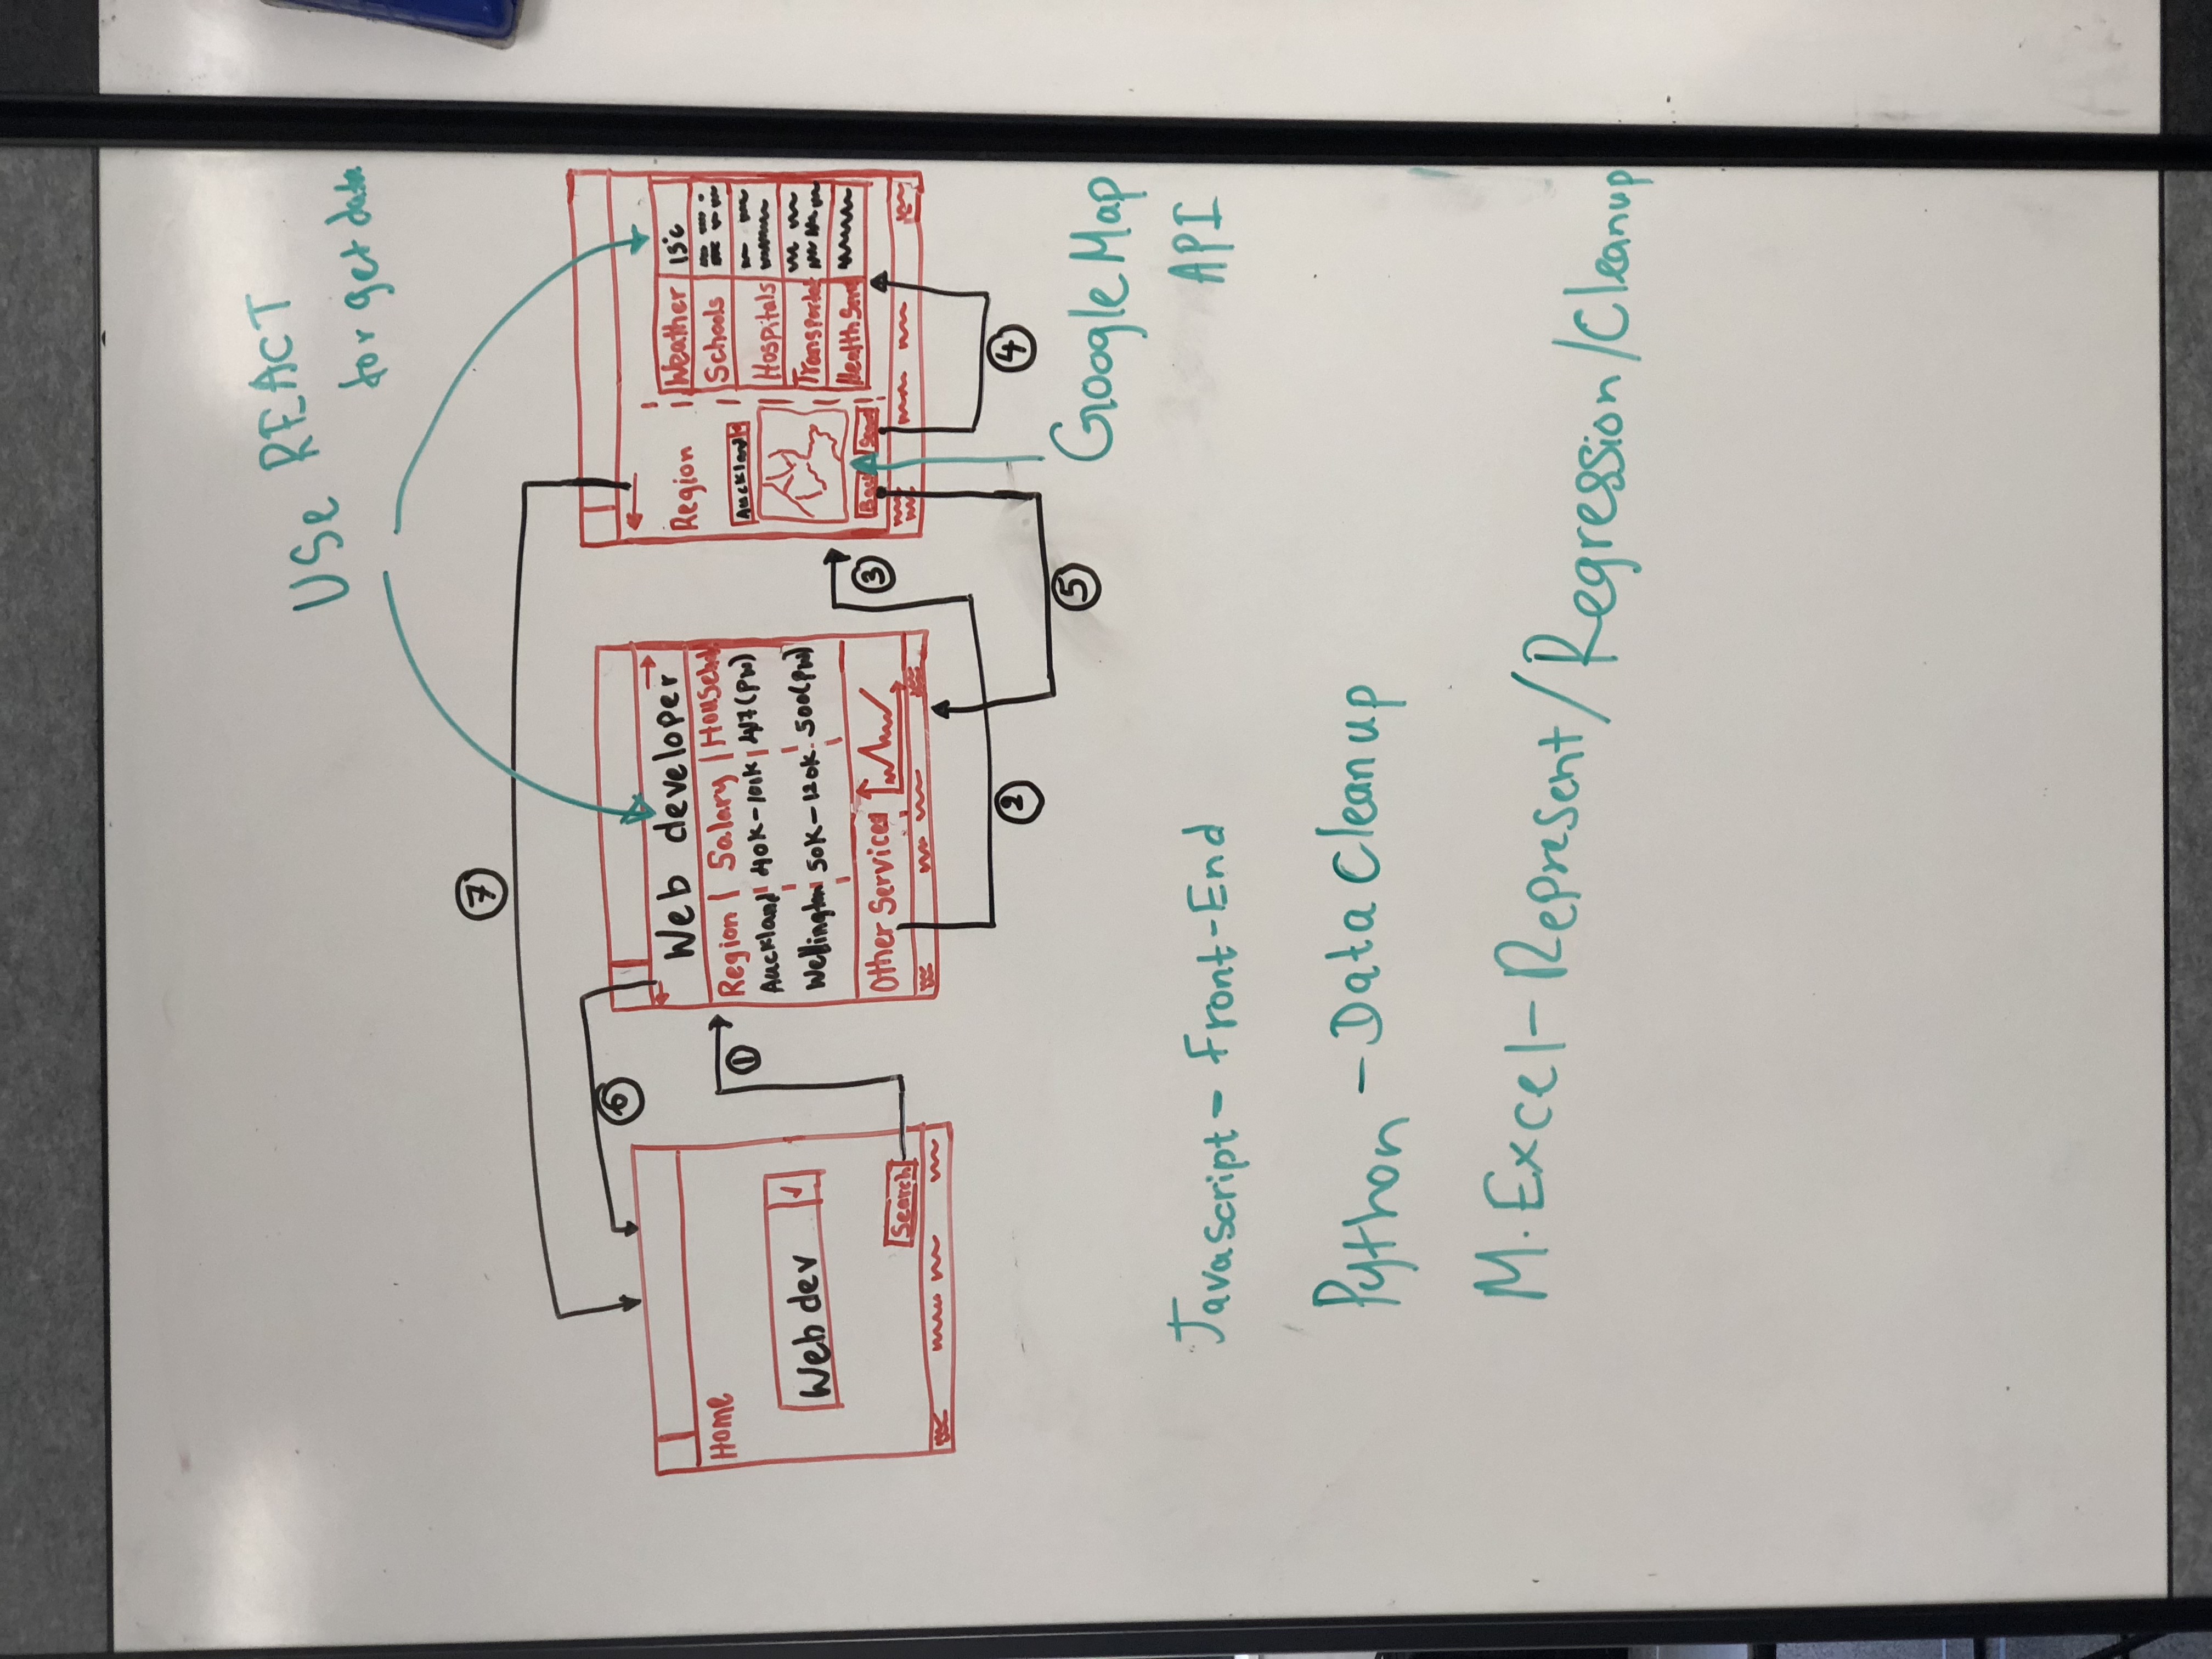 Use REACT
for get data
⑦
⑥
①
②
③
④
⑤
Home
Web dev
Search
Web developer
Region | Salary | Household
Auckland | 40K-101K | 417(PW)
Wellington | 50K-120K | 500(PW)
Other Services
Region
Auckland
Weather 13°c
Schools
Hospitals
Google Map
API
Javascript - Front-End
Python - Data Cleanup
M.Excel - Represent/Regression/Cleanup